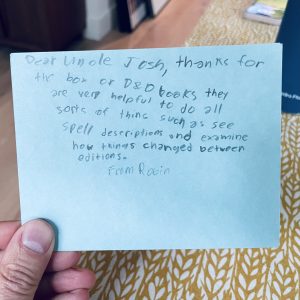 Dear Uncle Josh, thanks for
the box or D&D books they
are very helpful to do all
sorts of thing such as see
spell descriptions and examine
how things changed between
editions.
From Robin